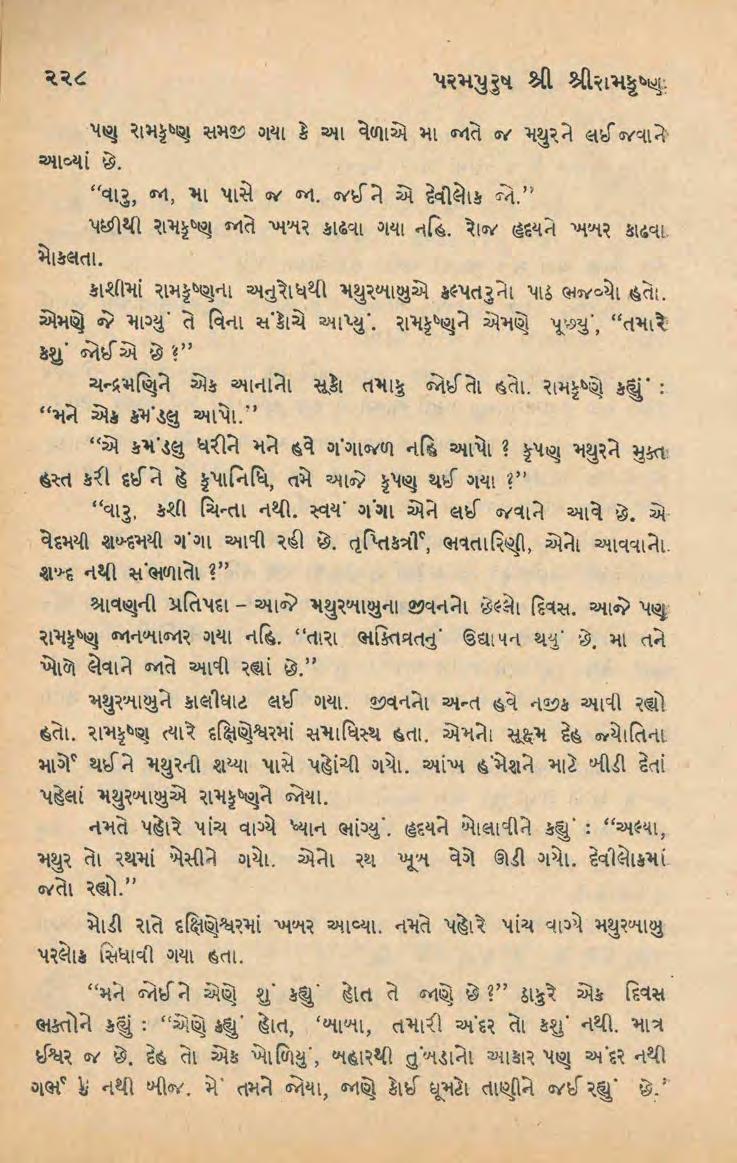 ૨૨૮ પરમપુરુષ શ્રી શ્રીરામકૃષ્ણ:
પણ રામકૃષ્ણ સમજી ગયા કે આ વેળાએ મા જાતે જ મથુરને લઈ જવાને
આવ્યાં છે.
“વારુ, જા, મા પાસે જ જા. જઈને એ દેવીલોક જો.”
પછીથી રામકૃષ્ણ જાતે ખબર કાઢવા ગયા નહિ. રોજ હૃદયને ખબર કાઢવા
મોકલતા.
કાશીમાં રામકૃષ્ણના અનુરોધથી મથુરબાબુએ કલ્પતરુનો પાઠ ભજવ્યો હતો.
એમણે જે માગ્યું તે વિના સંકોચે આપ્યું. રામકૃષ્ણને એમણે પૂછ્યું, “તમારે
કશું જોઈએ છે ?”
ચન્દ્રમણિને એક આનાનો સૂકો તમાકુ જોઈતો હતો. રામકૃષ્ણે કહ્યું :
“મને એક કમંડલુ આપો.”
“એ કમંડલુ ધરીને મને હવે ગંગાજળ નહિ આપો ? કૃપણ મથુરને મુક્ત
હસ્ત કરી દઈને હે કૃપાનિધિ, તમે આજે કૃપણ થઈ ગયા ?”
“વારુ, કશી ચિન્તા નથી. સ્વયં ગંગા એને લઈ જવાને આવે છે. એ
વેદમયી શબ્દમયી ગંગા આવી રહી છે. તૃપ્તિકર્ત્રી, ભવતારિણી, એનો આવવાનો
શબ્દ નથી સંભળાતો ?”
શ્રાવણની પ્રતિપદા – આજે મથુરબાબુના જીવનનો છેલ્લો દિવસ. આજે પણ
રામકૃષ્ણ જાનબાજાર ગયા નહિ. “તારા ભક્તિવ્રતનું ઉદ્યાપન થયું છે, મા તને
ખોળે લેવાને જાતે આવી રહ્યાં છે.”
મથુરબાબુને કાલીઘાટ લઈ ગયા. જીવનનો અન્ત હવે નજીક આવી રહ્યો
હતો. રામકૃષ્ણ ત્યારે દક્ષિણેશ્વરમાં સમાધિસ્થ હતા. એમનો સૂક્ષ્મ દેહ જ્યોતિના
માર્ગે થઈને મથુરની શય્યા પાસે પહોંચી ગયો. આંખ હંમેશને માટે બીડી દેતાં
પહેલાં મથુરબાબુએ રામકૃષ્ણને જોયા.
નમતે પહોરે પાંચ વાગ્યે ધ્યાન ભાંગ્યું. હૃદયને બોલાવીને કહ્યું : “અલ્યા,
મથુર તો રથમાં બેસીને ગયો. એનો રથ ખૂબ વેગે ઊડી ગયો. દેવીલોકમાં
જતો રહ્યો.”
મોડી રાતે દક્ષિણેશ્વરમાં ખબર આવ્યા. નમતે પહોરે પાંચ વાગ્યે મથુરબાબુ
પરલોક સિધાવી ગયા હતા.
“મને જોઈને એણે શું કહ્યું હોત તે જાણે છે ?” ઠાકુરે એક દિવસ
ભક્તોને કહ્યું : “એણે કહ્યું હોત, ‘બાબા, તમારી અંદર તો કશું નથી. માત્ર
ઈશ્વર જ છે. દેહ તો એક ખોળિયું, બહારથી તુંબડાનો આકાર પણ અંદર નથી
ગર્ભ કે નથી બીજ. મેં તમને જોયા, જાણે કોઈ ઘૂમટો તાણીને જઈ રહ્યું છે.’